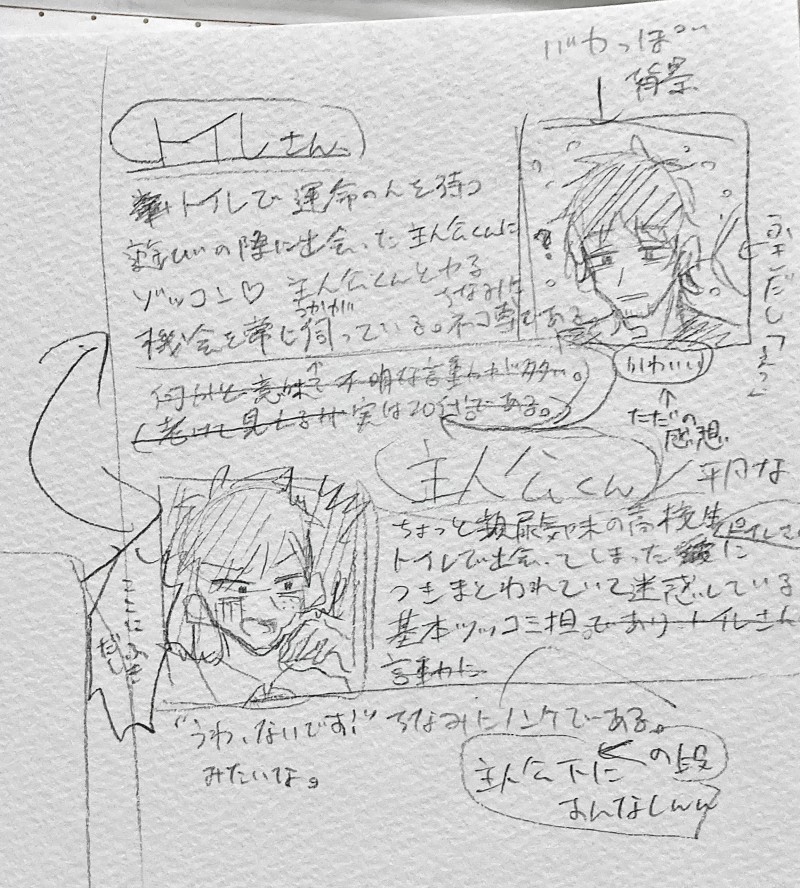 バカっぽい
背景
トイレさん
トイレで運命の人を待つ
の際に出会った主人公くんに
ゾッコン♡ 主人公くんとヤる
うかが
ちなみに
機会を常に伺っている。ネコ専である
何かと意味不明な言動わどが多い。
(老けて見えるが実は20代である。)
ふきだし「え?」
かわいい
↑
ただの
感想
主人公くん
平凡な
ちょっと頻尿気味の高校生
トイレで出会ってしまった
つきまとわれていて迷惑している
基本ツッコミ担であり トイレさん
言動に
ここにふき
だし
"うわ、ないです!" ちなみにノンケである。
みたいな。
主人公下に の段